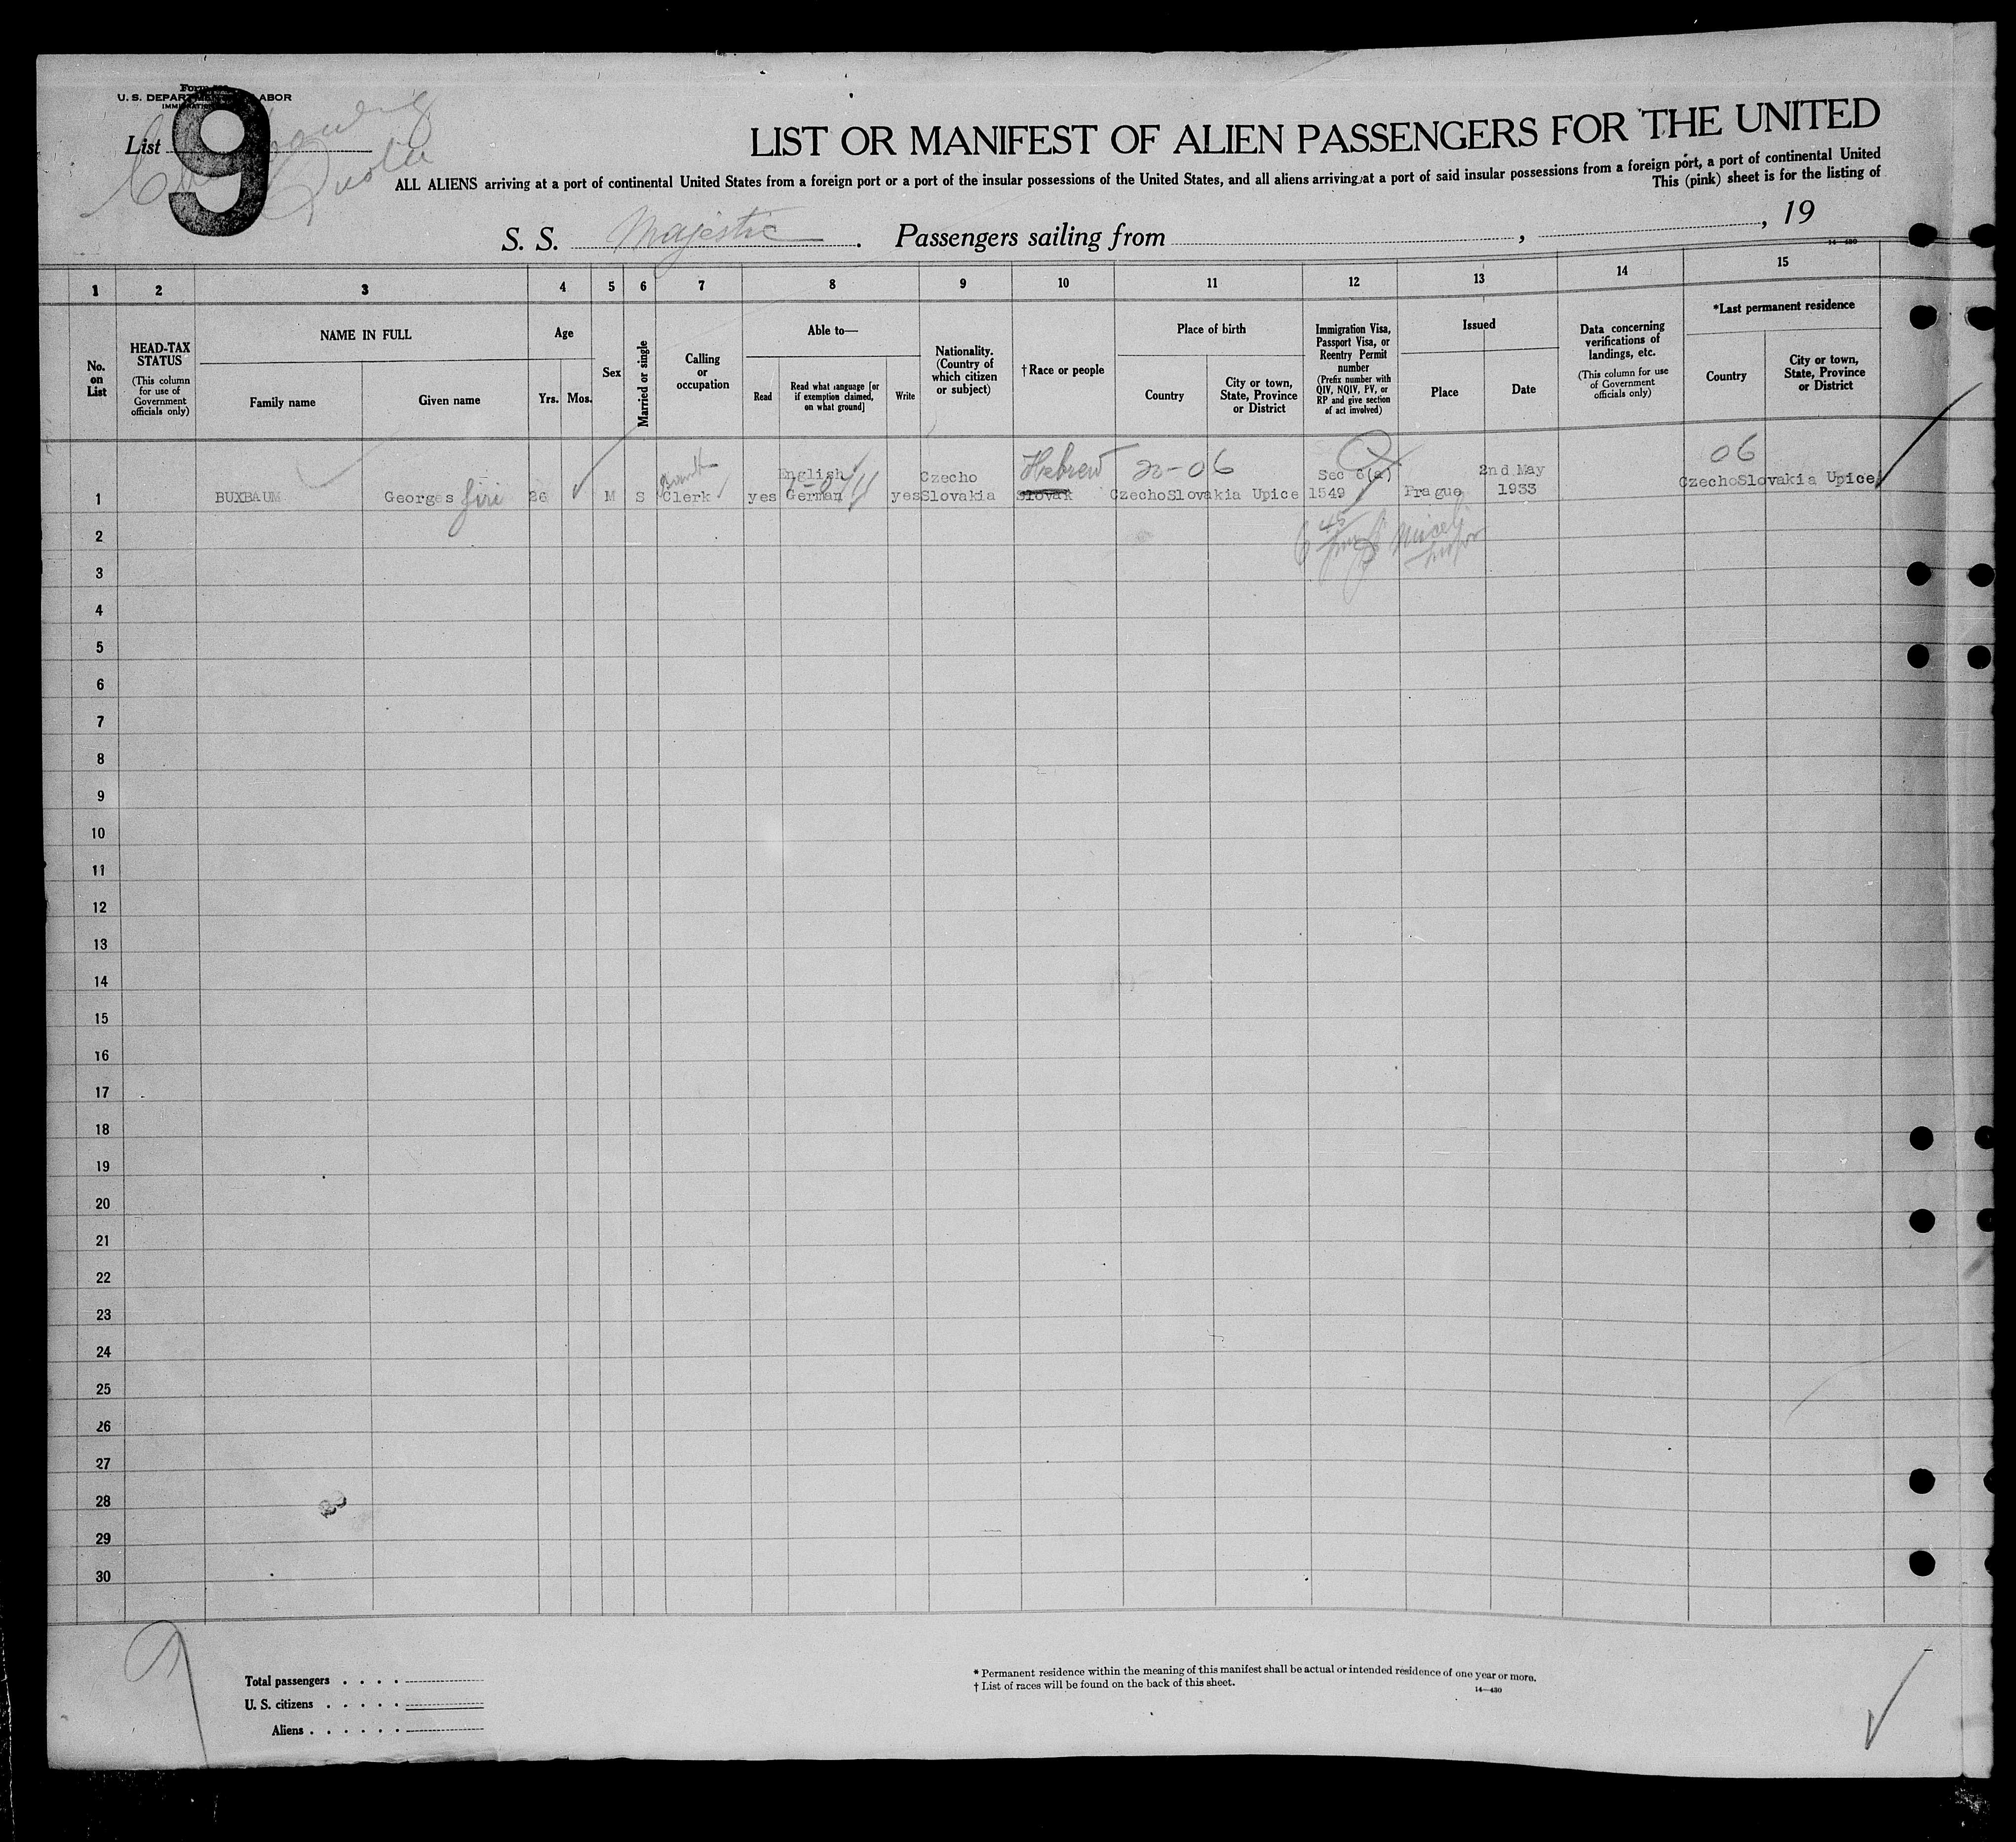 Form
U. S. DEPARTMENT LABOR
IMMIGRATION
9
List
Quota
LIST OR MANIFEST OF ALIEN PASSENGERS FOR THE UNITED
ALL ALIENS arriving at a port of continental United States from a foreign port or a port of the insular possessions of the United States, and all aliens arriving at a port of said insular possessions from a foreign port, a port of continental United
This (pink) sheet is for the listing of
S. S. Majestic. Passengers sailing from , , 19
14—430
1 2 3 4 5 6 7 8 9 10 11 12 13 14 15
No. on List
HEAD-TAX STATUS
(This column for use of Government officials only)
NAME IN FULL
Family name
Given name
Age
Yrs. Mos.
Sex
Married or single
Calling or occupation
Able to—
Read
Read what language [or if exemption claimed, on what ground]
Write
Nationality. (Country of which citizen or subject)
† Race or people
Place of birth
Country
City or town, State, Province or District
Immigration Visa, Passport Visa, or Reentry Permit number
(Prefix number with QIV, NQIV, PV, or RP and give section of act involved)
Issued
Place
Date
Data concerning verifications of landings, etc.
(This column for use of Government officials only)
*Last permanent residence
Country
City or town, State, Province or District
English Czecho Hebrew 20-06 Sec 6(a) 2nd May 06
1 BUXBAUM Georges Jiri 26 M S Clerk yes German yes Slovakia Slovak CzechoSlovakia Upice 1549 Prague 1933 CzechoSlovakia Upice
2
3
4
5
6
7
8
9
10
11
12
13
14
15
16
17
18
19
20
21
22
23
24
25
26
27
28
29
30
Total passengers . . . .
U. S. citizens . . . . .
Aliens . . . . . .
* Permanent residence within the meaning of this manifest shall be actual or intended residence of one year or more.
† List of races will be found on the back of this sheet.
14—430